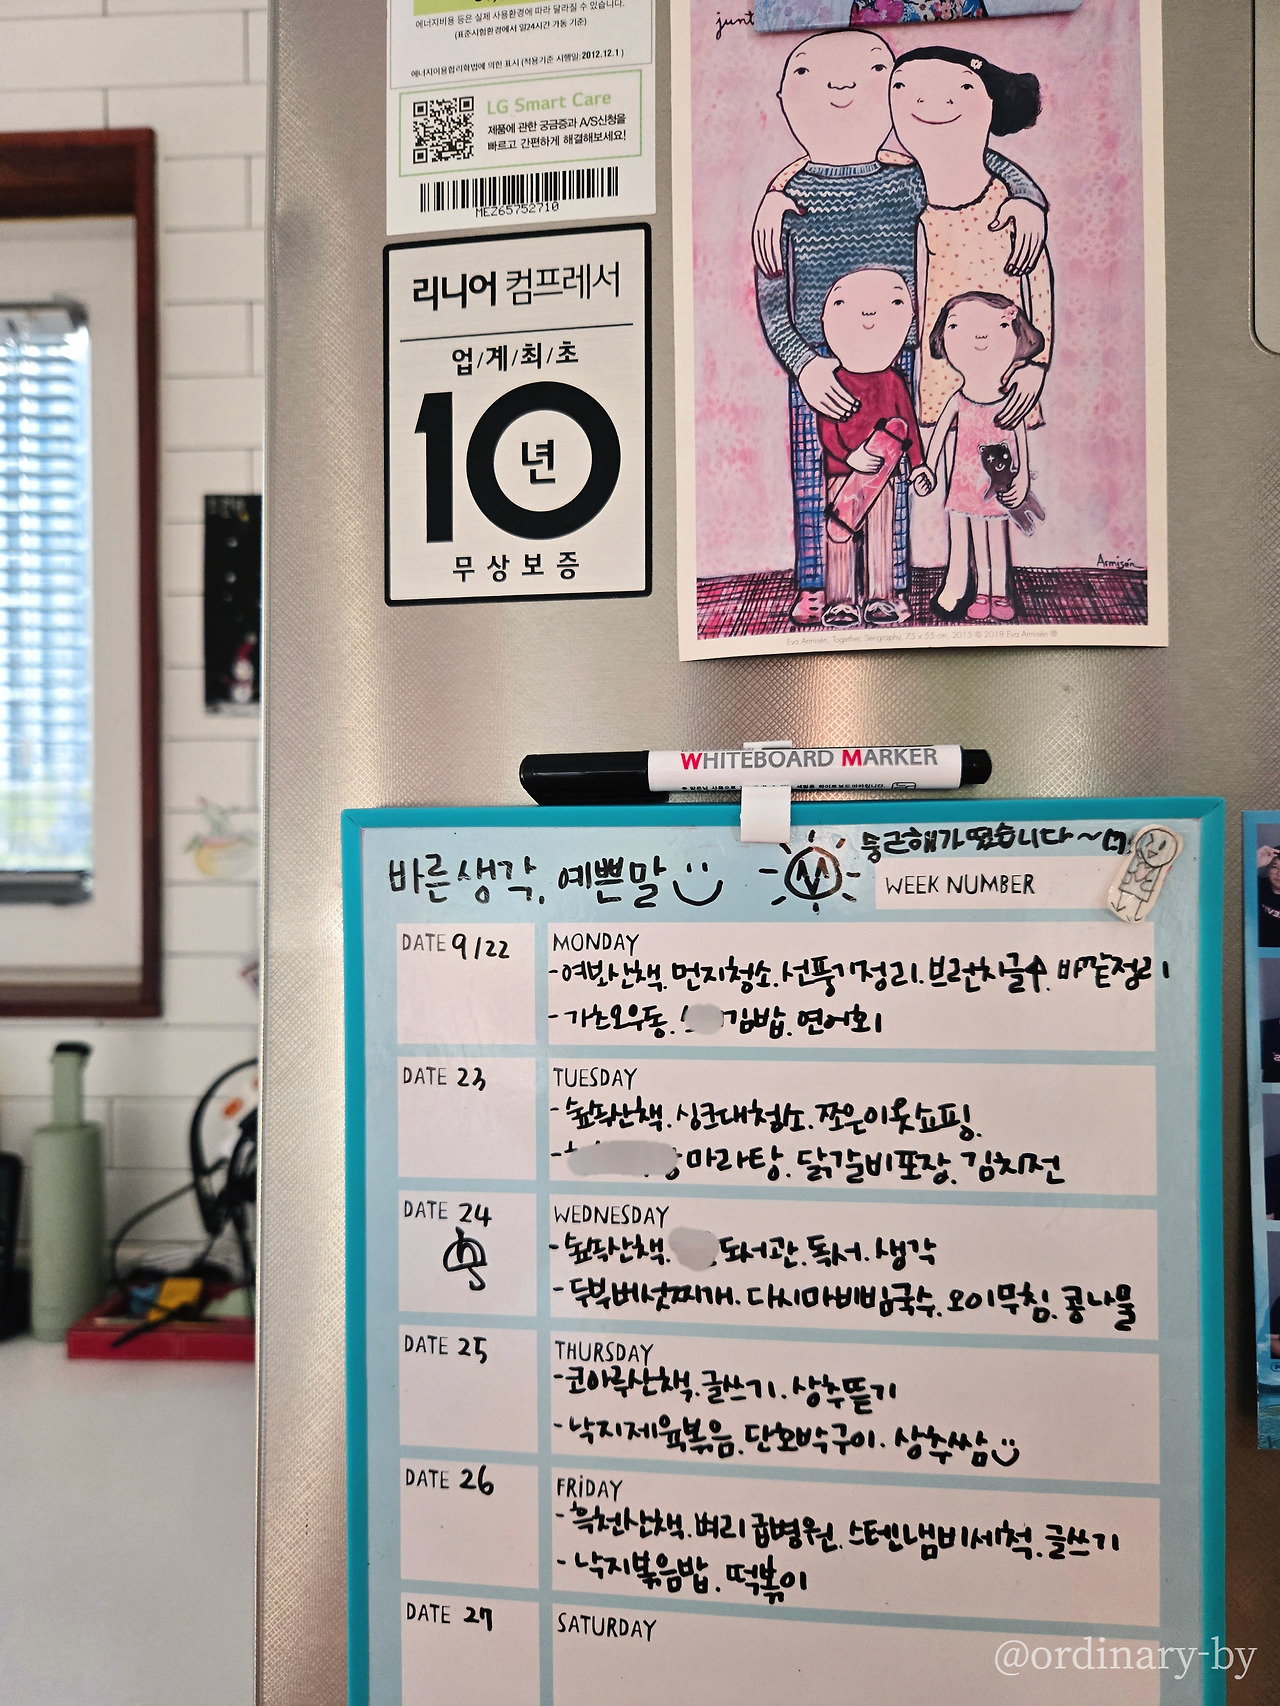 에너지비용 등은 실제 사용환경에 따라 달라질 수 있습니다.
(표준시험환경에서 일24시간 가동 기준)
에너지이용합리화법에 의한 표시 (적용기준 시행일: 2012.12.1)
LG Smart Care
제품에 관한 궁금증과 A/S신청을
빠르고 간편하게 해결해보세요!
MEZ65752710
리니어 컴프레서
업/계/최/초
10년
무상보증
junt
Armisén
Eva Armisén, Together, Serigraphy, 75 x 55 cm, 2015 © 2018 Eva Armisén ®
WHITEBOARD MARKER
바른생각, 예쁜말
둥근해가 떴습니다~
WEEK NUMBER
DATE 9/22 MONDAY
-여보산책. 먼지청소. 선풍기정리. 브런치글. 바깥정리
- 가츠오우동. 김밥. 연어회
DATE 23 TUESDAY
-숲속산책. 싱크대청소. 쪼은이옷쇼핑.
- 마라탕. 닭갈비포장. 김치전
DATE 24 WEDNESDAY
-숲속산책. 도서관. 독서. 생각
- 두부버섯찌개. 다시마비빔국수. 오이무침. 콩나물
DATE 25 THURSDAY
-코아루산책. 글쓰기. 상추뜯기
- 낙지제육볶음. 단호박구이. 상추쌈
DATE 26 FRIDAY
- 흑천산책. 벼리 병원. 스텐냄비세척. 글쓰기
- 낙지볶음밥. 떡볶이
DATE 27 SATURDAY
@ordinary-by